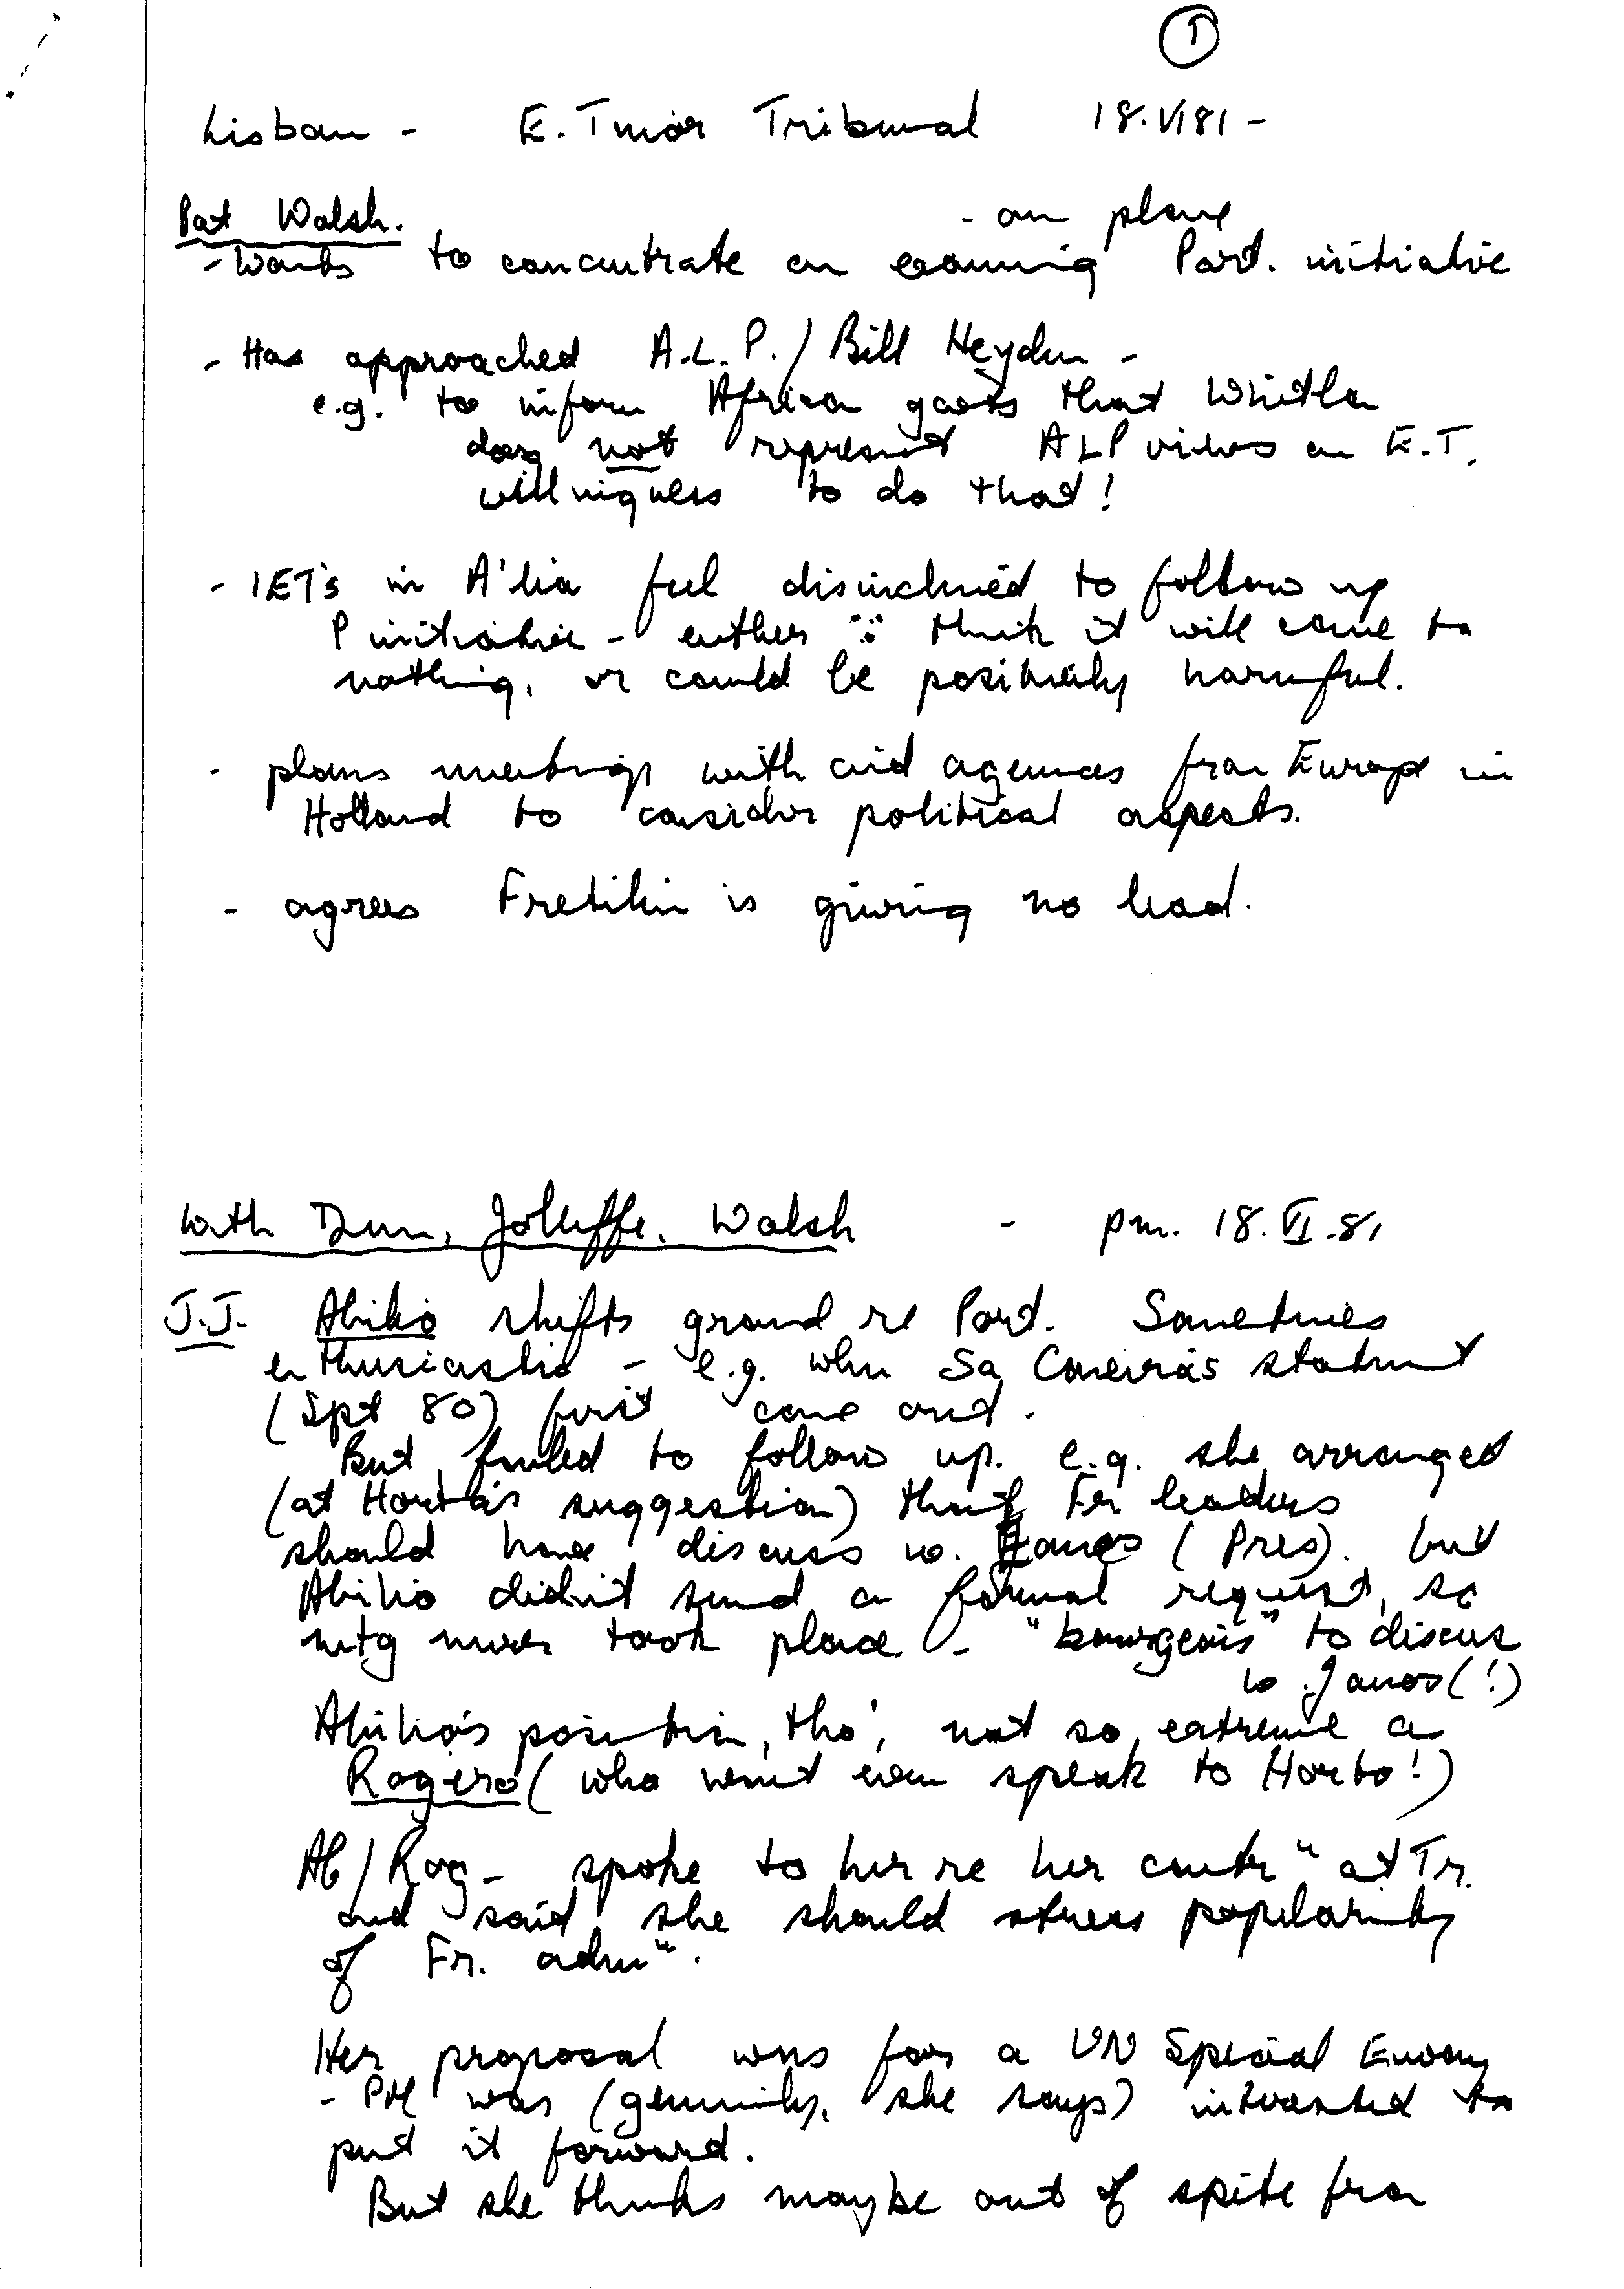 1
Lisbon - E. Timor Tribunal 18.VI81 -
Pat Walsh. - on plane
- Wants to concentrate on Port. initiative
- Has approached A.L.P. / Bill Heyden -
e.g. to inform Africa govts that Whitlam
does not represent ALP views on E.T.
willingness to do that!
- IETs in A'lia feel disinclined to follow up
P initiative - either ∵ think it will come to
nothing, or could be positively harmful.
- plans meetings with aid agences from Europe in
Holland to consider political aspects.
- agrees Fretilin is giving no lead.
With Dunn, Jolliffe, Walsh - pm. 18.VI.81
J.J. Abilio shifts ground re Port. Sometimes
enthusiastic - e.g. when Sa Carneira's statmnt
(Spt 80) first came out.
But failed to follow up. e.g. she arranged
(at Horta's suggestion) that Fr leaders
should have discuss w. Eanes (Pres). but
Abilio didn't send a formal request, so
mtg never took place - "bourgeois" to discuss
w. (!)
Abilio's position, tho', not so extreme a
Rogerio (who won't even speak to Horta!)
Ab/Rog - spoke to her re her contrn at Tr.
and said she should stress popularity
of Fr. admn.
Her proposal was for a UN Special Envoy
- PM was (genuinely, she says) interested to
put it forward.
But she thinks maybe out of spite from